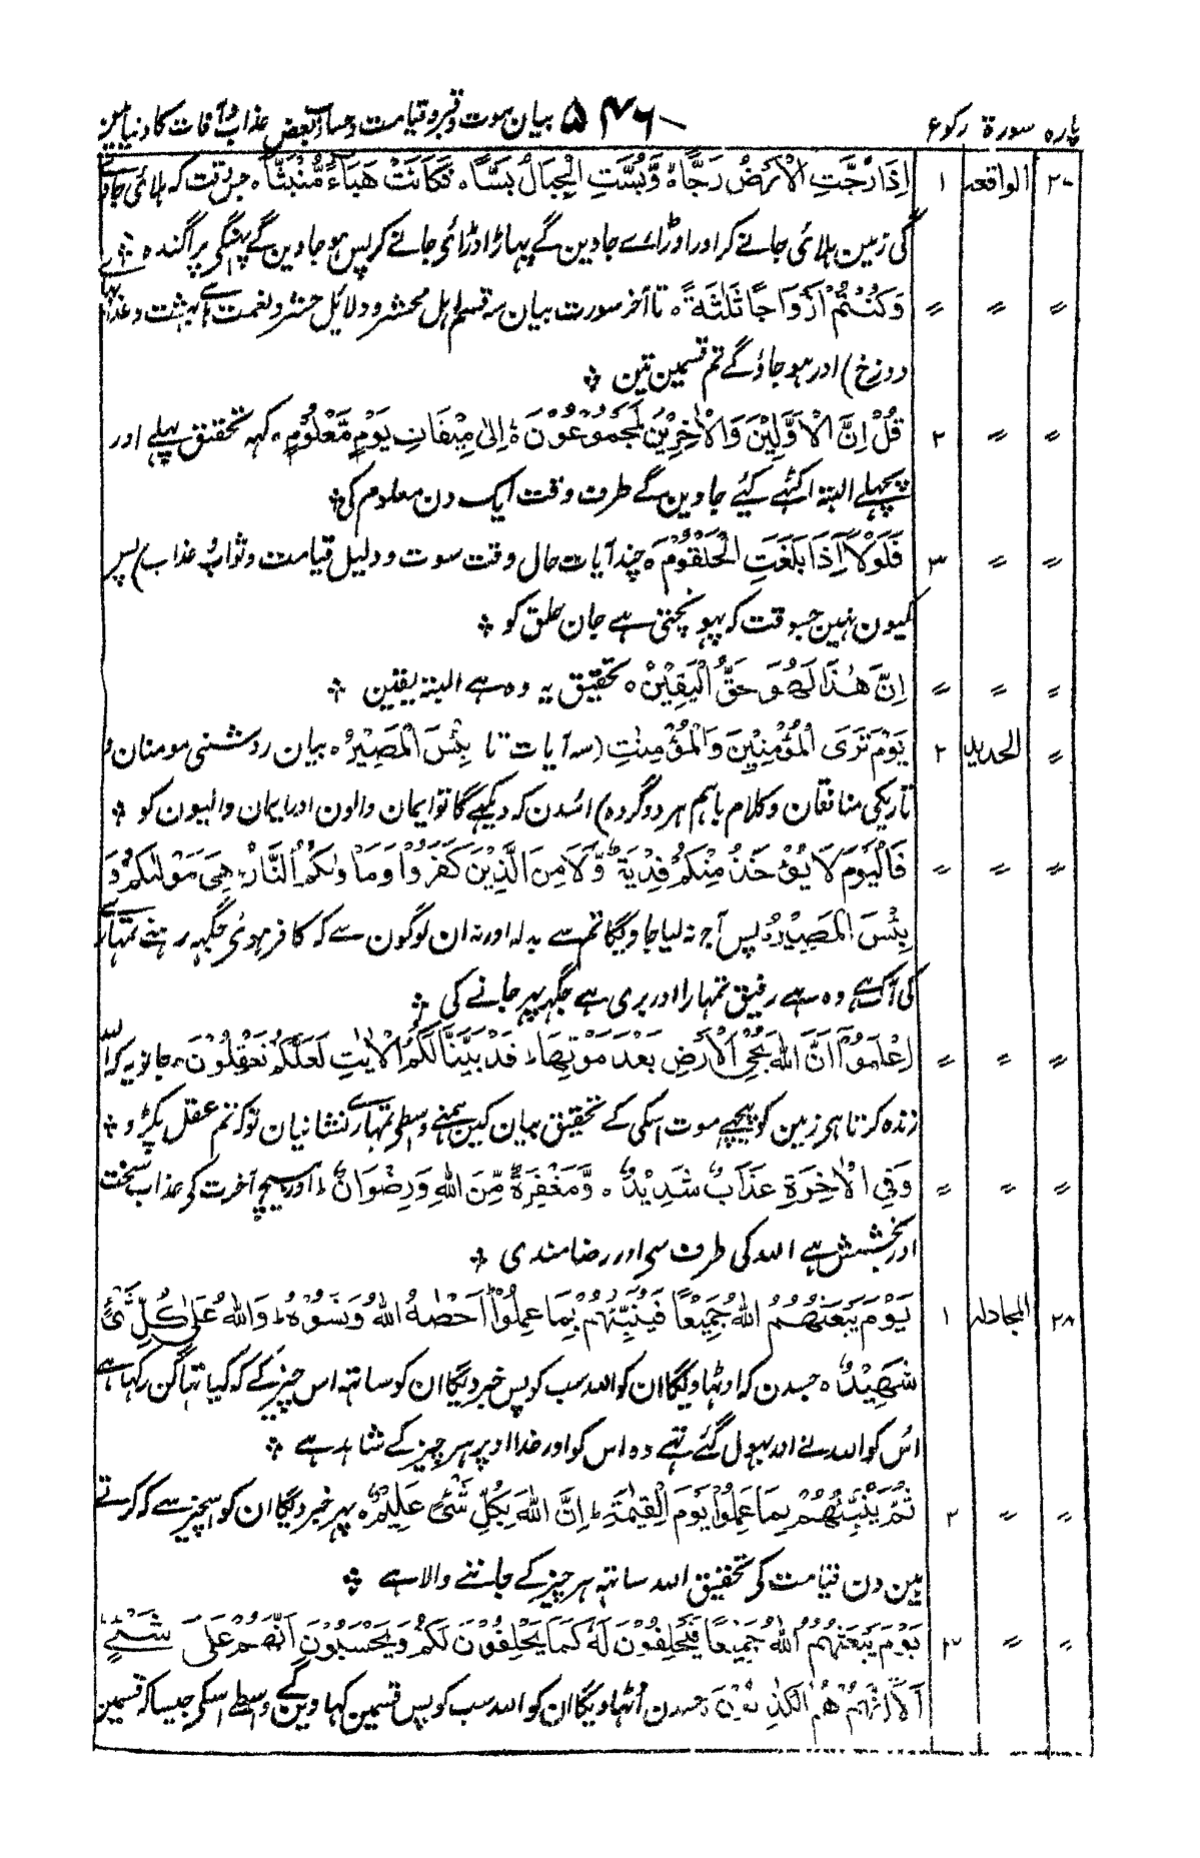 پاره سورة رکوع ۵۴۶ بیان موت و قبر و قیامت و حساب و بعض عذاب و آفات کا دنیا میں
۲۷ الواقعہ ۱ اِذَا رُجَّتِ الْاَرْضُ رَجًّا ہ وَّبُسَّتِ الْجِبَالُ بَسًّا ہ فَکَانَتْ هَبَآءً مُّنْۢبَثًّا ہ جس وقت کہ ہلائی جاوے
گی زمین ہلائی جانے کر اور اوڑائے جاوین گے پہاڑ اوڑائی جانے کر پس ہو جاوین گے بہنگی پراگندہ
〃 〃 〃 وَکُنْتُمْ اَزْوَاجًا ثَلٰثَةً ہ تا آخر سورت بیان سہ قسم اہل محشر و دلائل حشر و نعمت ہائے بہشت و عذابہائے
دوزخ) اور ہو جاؤ گے تم قسمین تین
〃 〃 ۲ قُلْ اِنَّ الْاَوَّلِیْنَ وَالْاٰخِرِیْنَ لَمَجْمُوْعُوْنَ ہ اِلٰی مِیْقَاتِ یَوْمٍ مَّعْلُوْمٍ ہ کہہ تحقیق پہلے اور
پچہلے البتہ اکٹہے کیے جاوین گے طرف وقت ایک دن معلوم کی
〃 〃 ۳ فَلَوْلَآ اِذَا بَلَغَتِ الْحُلْقُوْمَ ہ چند آیات حال وقت موت و دلیل قیامت و ثواب و عذاب) پس
کیون نہین جسوقت کہ پہونچتی ہے جان حلق کو
〃 〃 〃 اِنَّ هٰذَا لَهُوَ حَقُّ الْیَقِیْنِ ہ تحقیق یہ وہ ہے البتہ یقین
〃 الحدید ۲ یَوْمَ تَرَی الْمُؤْمِنِیْنَ وَالْمُؤْمِنٰتِ (سہ آیات تا بِئْسَ الْمَصِیْرُ ہ بیان روشنی مومنان و
تاریکی منافقان و کلام باہم ہر دو گروہ) اُسدن کہ دیکہے گا تو ایمان والون اور ایمان والیون کو
〃 〃 〃 فَالْیَوْمَ لَا یُؤْخَذُ مِنْکُمْ فِدْیَةٌ وَّلَا مِنَ الَّذِیْنَ کَفَرُوْا وَمَاْوٰىکُمُ النَّارُ هِیَ مَوْلٰىکُمْ وَ
بِئْسَ الْمَصِیْرُ ہ پس آج نہ لیا جاویگا تم سے بدلہ اور نہ ان لوگون سے کہ کافر ہوئی جگہہ رہنے تمہارے
کی آگ ہے وہ ہے رفیق تمہارا اور بری ہے جگہہ پہر جانے کی
〃 〃 〃 اِعْلَمُوْٓا اَنَّ اللّٰهَ یُحْیِ الْاَرْضَ بَعْدَ مَوْتِهَا ط قَدْ بَیَّنَّا لَکُمُ الْاٰیٰتِ لَعَلَّکُمْ تَعْقِلُوْنَ ہ جانو یہ کہ اللہ
زندہ کرتا ہر زمین کو پیچہے موت اسکی کے تحقیق بیان کین ہمنے واسطے تمہارے نشانیان تو کہ تم عقل پکڑو
〃 〃 〃 وَفِی الْاٰخِرَةِ عَذَابٌ شَدِیْدٌ ہ وَّمَغْفِرَةٌ مِّنَ اللّٰهِ وَرِضْوَانٌ ط اور بیچ آخرت کی عذاب سخت
اور بخشش ہے اللہ کی طرف سی اور رضامندی
۲۸ المجادلہ ۱ یَوْمَ یَبْعَثُهُمُ اللّٰهُ جَمِیْعًا فَیُنَبِّئُهُمْ بِمَا عَمِلُوْا اَحْصٰهُ اللّٰهُ وَنَسُوْهُ ط وَاللّٰهُ عَلٰی کُلِّ شَیْءٍ
شَهِیْدٌ ہ جسدن کہ اوٹہاویگا ان کو اللہ سب کو پس خبر دیگا ان کو ساتہ اس چیز کے کہ کیا تہا گن رکہا ہے
اُس کو اللہ نے اور بہول گئے تہے وہ اس کو اور خدا اوپر ہر چیز کے شاہد ہے
〃 〃 ۲ ثُمَّ یُنَبِّئُهُمْ بِمَا عَمِلُوْا یَوْمَ الْقِیٰمَةِ ط اِنَّ اللّٰهَ بِکُلِّ شَیْءٍ عَلِیْمٌ ہ پہر خبر دیگا ان کو سچیز سے کہ کرتے
ہین دن قیامت کی تحقیق اللہ ساتہ ہر چیز کے جاننے والا ہے
〃 〃 ۳ یَوْمَ یَبْعَثُهُمُ اللّٰهُ جَمِیْعًا فَیَحْلِفُوْنَ لَهٗ کَمَا یَحْلِفُوْنَ لَکُمْ وَیَحْسَبُوْنَ اَنَّهُمْ عَلٰی شَیْءٍ
اَلَآ اِنَّهُمْ هُمُ الْکٰذِبُوْنَ ہ جسدن اُٹہاویگا ان کو اللہ سب کو پس قسمین کہاوین گے واسطے اسکی جیسا کہ قسمین